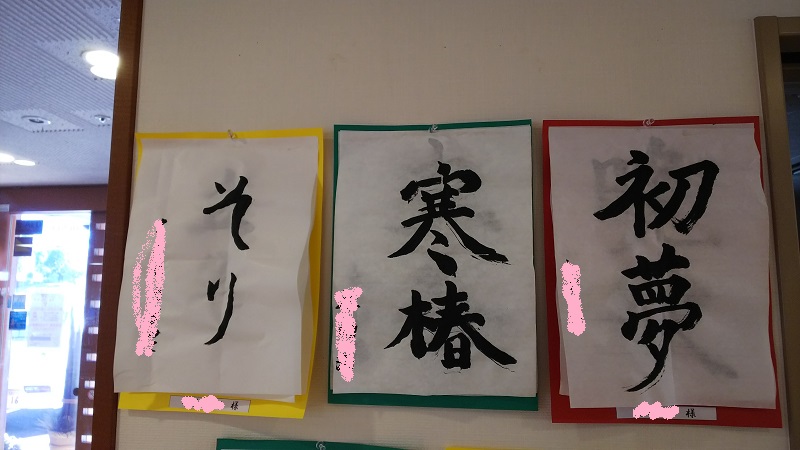 初夢
様
寒椿
そり
様